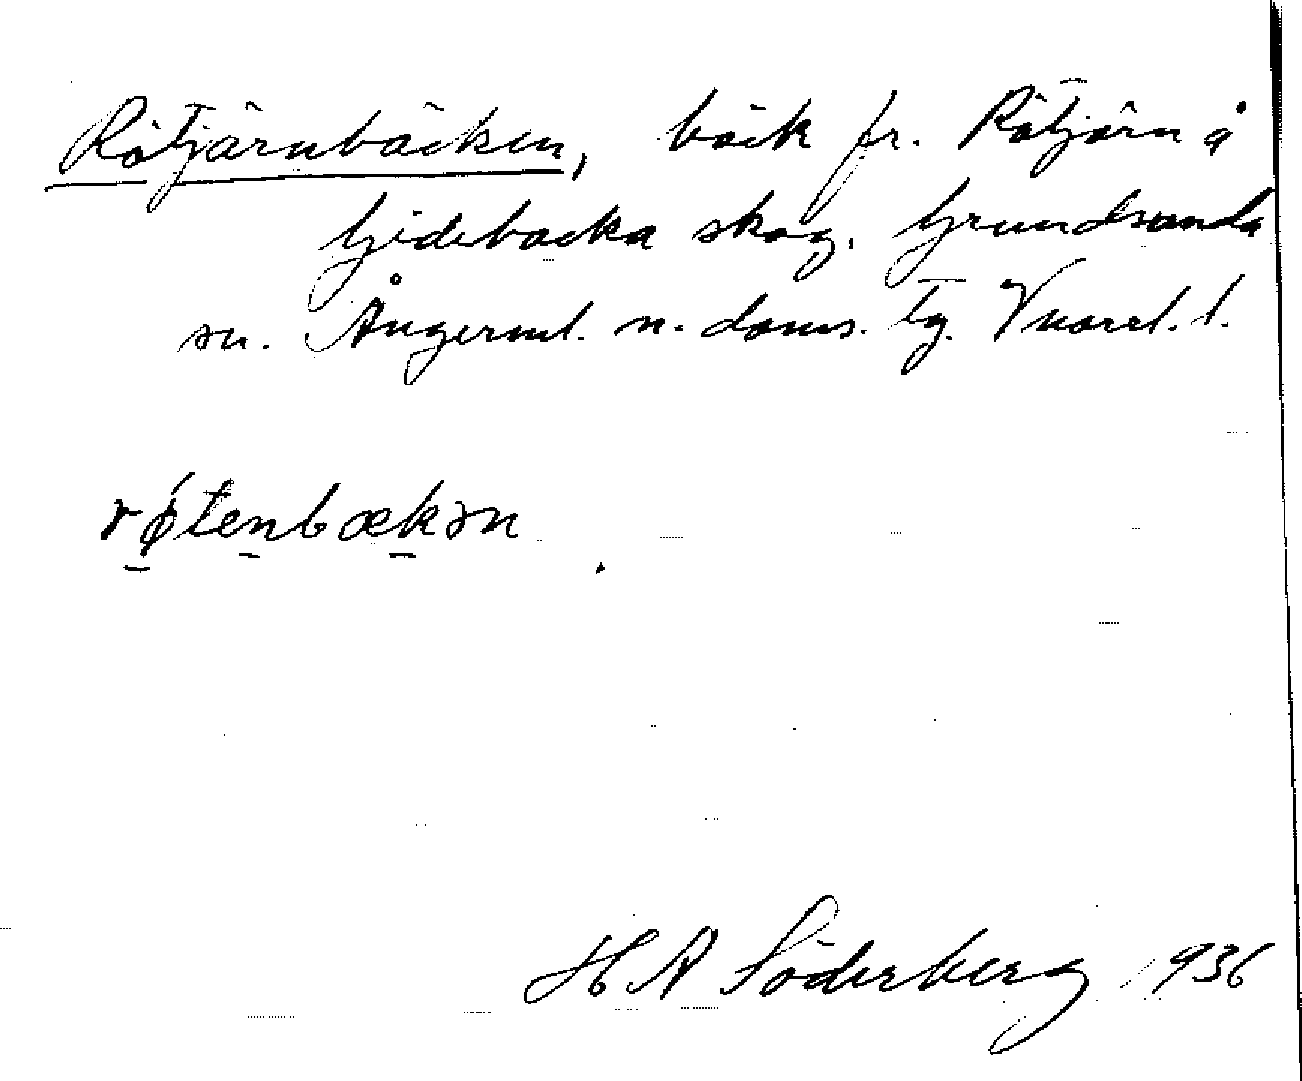 Rötjärnbäcken, bäck fr. Rötjärn å
Gidebacka skog. Grundsunda
sn. Ångerml. n. doms. tg. Vnorrl. l.
røtenbækən
H A Söderberg 1936